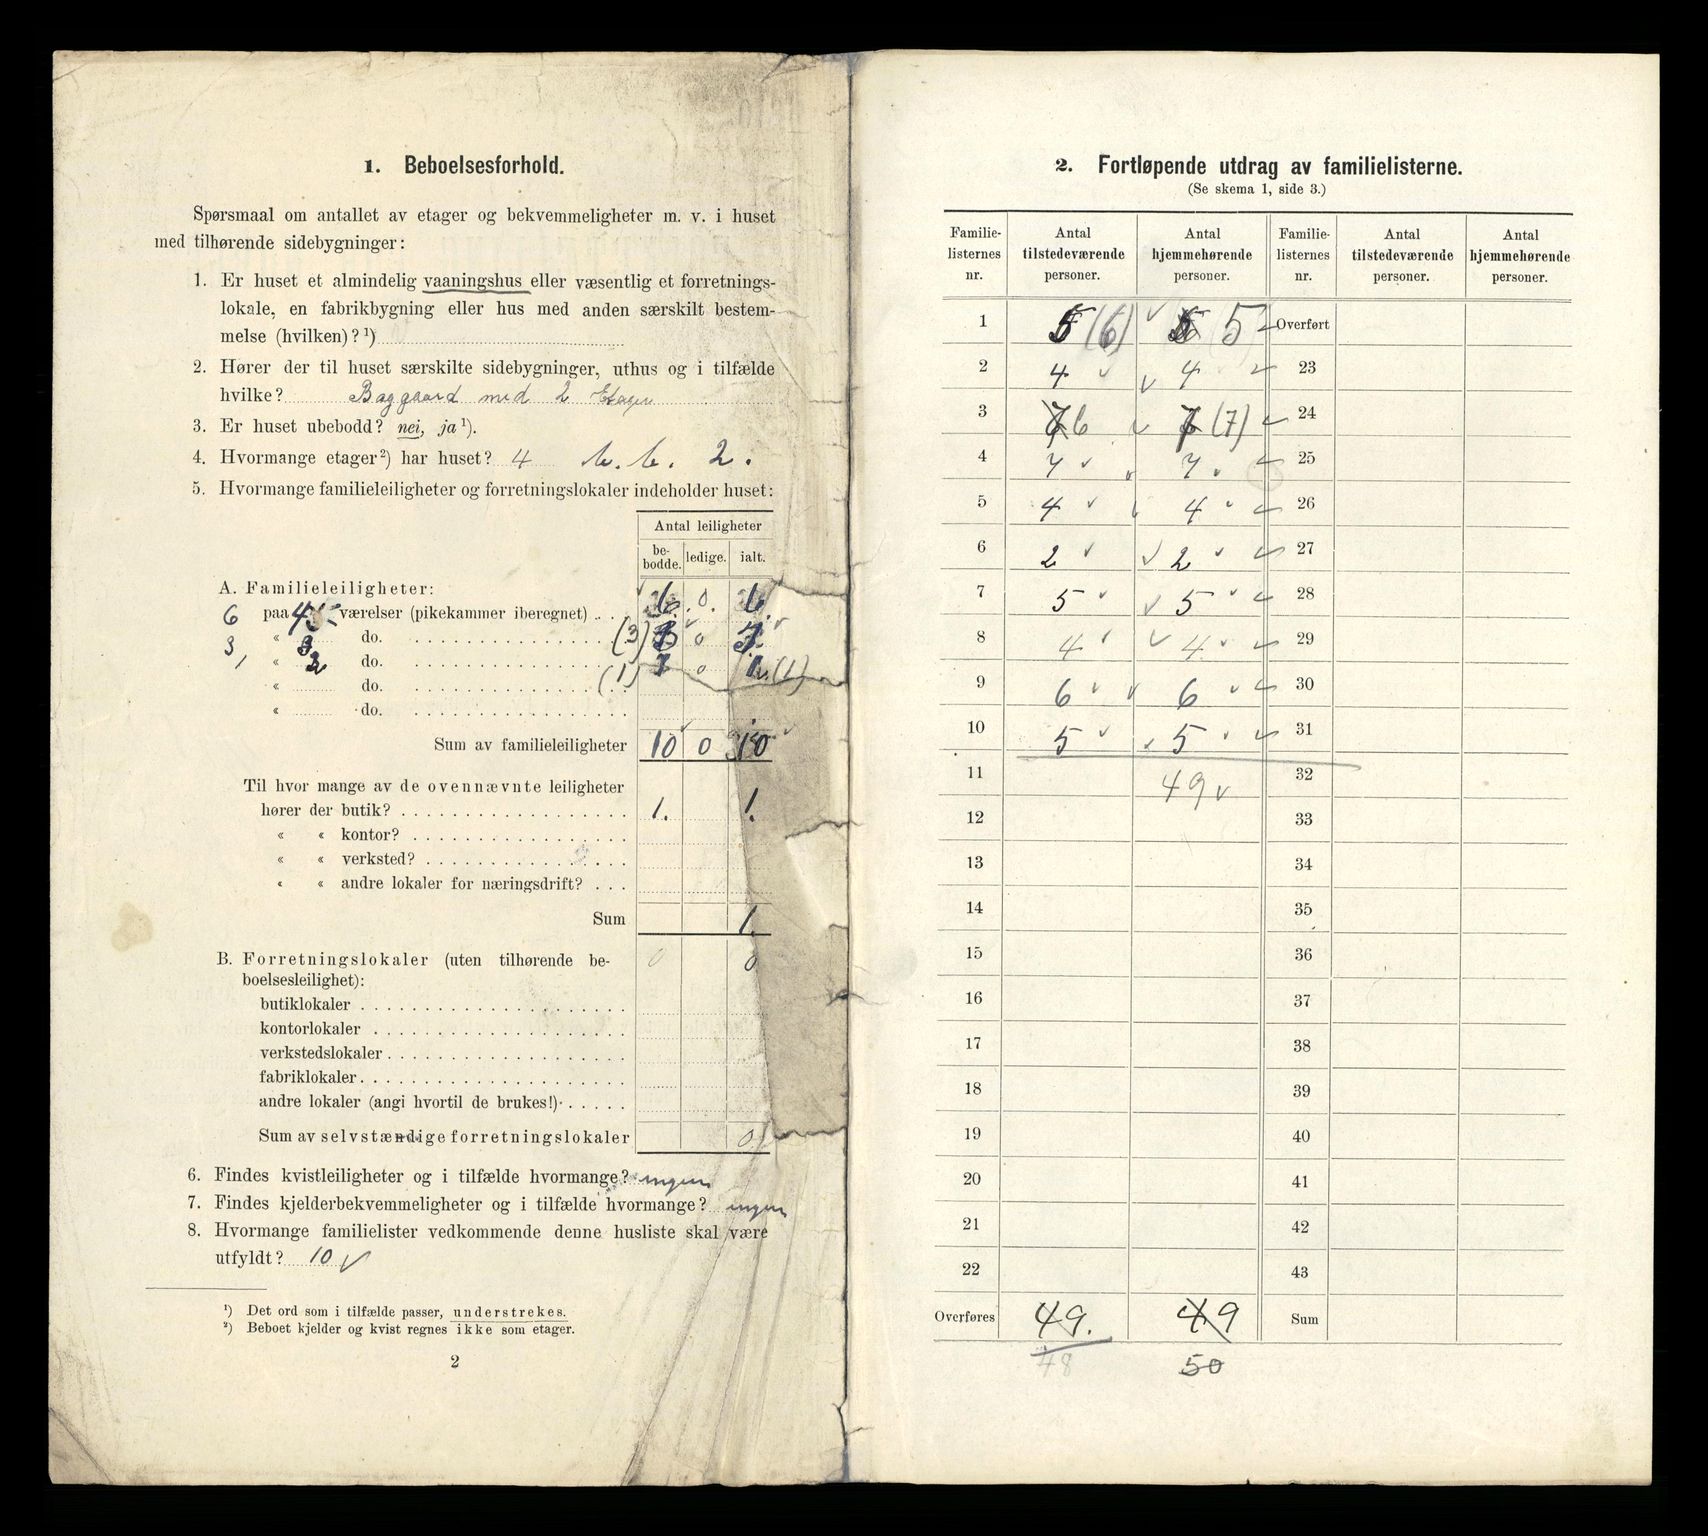 1. Beboelsesforhold.
Spørsmaal om antallet av etager og bekvemmeligheter m. v. i huset
med tilhørende sidebygninger:
1. Er huset et almindelig vaaningshus eller væsentlig et forretnings-
lokale, en fabrikbygning eller hus med anden særskilt bestem-
melse (hvilken)? ¹)
2. Hører der til huset særskilte sidebygninger, uthus og i tilfælde
hvilke? Baggaard med 2 Etager
3. Er huset ubebodd? nei, ja ¹).
4. Hvormange etager ²) har huset? 4 b. b. 2.
5. Hvormange familieleiligheter og forretningslokaler indeholder huset:
Antal leiligheter
be-
bodde. ledige. ialt.
A. Familieleiligheter:
6 paa 4 værelser (pikekammer iberegnet) . . 6. 0. 6.
3 « 3 do. (3) 0
1 « 2 do. 0 1 (1)
« do. (1)
« do.
Sum av familieleiligheter 10 0 10
Til hvor mange av de ovennævnte leiligheter
hører der butik? 1. 1.
« « kontor?
« « verksted?
« « andre lokaler for næringsdrift? . . .
Sum 1.
B. Forretningslokaler (uten tilhørende be- 0 0
boelsesleilighet):
butiklokaler
kontorlokaler
verkstedslokaler
fabriklokaler
andre lokaler (angi hvortil de brukes!)
Sum av selvstændige forretningslokaler 0
6. Findes kvistleiligheter og i tilfælde hvormange? ingen
7. Findes kjelderbekvemmeligheter og i tilfælde hvormange? ingen
8. Hvormange familielister vedkommende denne husliste skal være
utfyldt? 10 ✓
¹) Det ord som i tilfælde passer, understrekes.
²) Beboet kjelder og kvist regnes ikke som etager.
2
2. Fortløpende utdrag av familielisterne.
(Se skema 1, side 3.)
Familie-listernes nr. Antal tilstedeværende personer. Antal hjemmehørende personer. Familie-listernes nr. Antal tilstedeværende personer. Antal hjemmehørende personer.
1 5 (6) ✓ 5 Overført
2 4 ✓ 4 23
3 6 ✓ (7) 24
4 7 ✓ 7 ✓ 25
5 4 ✓ 4 ✓ 26
6 2 ✓ 2 ✓ 27
7 5 ✓ 5 ✓ 28
8 4 ✓ 4 ✓ 29
9 6 ✓ 6 ✓ 30
10 5 ✓ 5 ✓ 31
11 49 ✓ 32
12 33
13 34
14 35
15 36
16 37
17 38
18 39
19 40
20 41
21 42
22 43
Overføres 49. 49 Sum
48 50